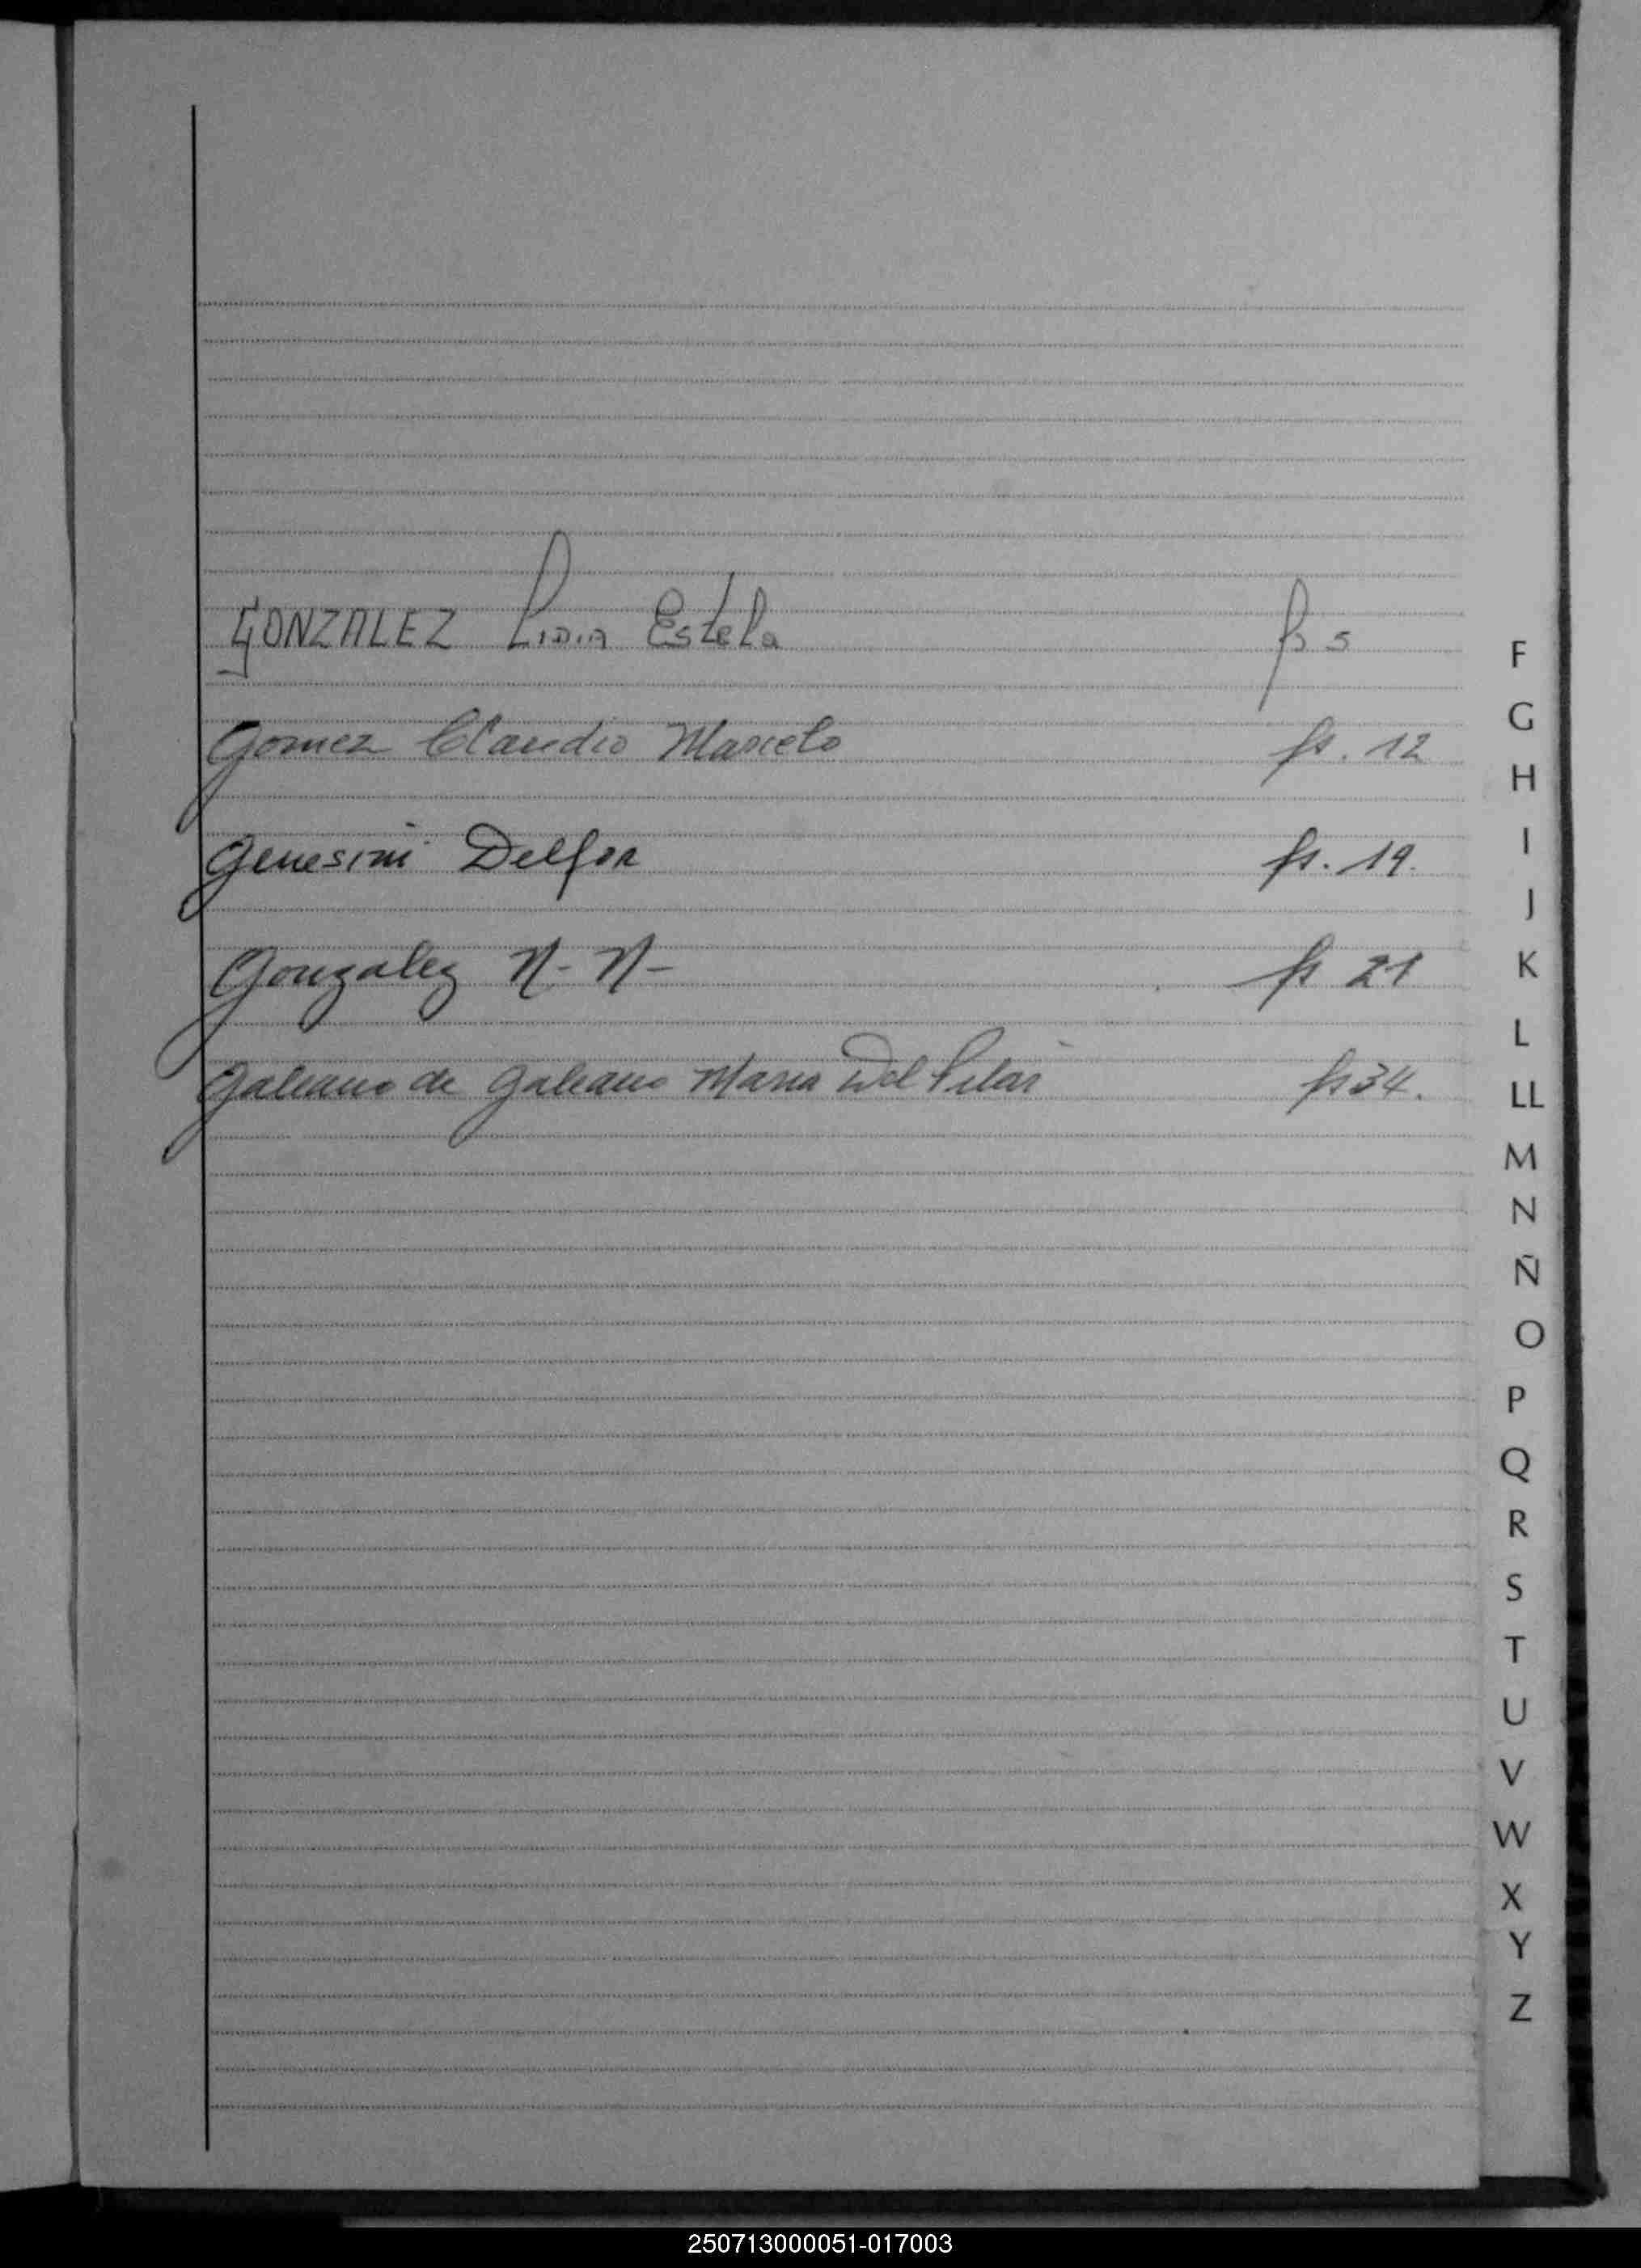 GONZALEZ Lidia Estela fs 5
Gomez Claudio Marcelo fs. 12
Genesini Delfor fs. 19.
Gonzalez N- N- fs 21
Galeano de Galeano Maria Del Pilar fs 34.
F
G
H
I
J
K
L
LL
M
N
Ñ
O
P
Q
R
S
T
U
V
W
X
Y
Z
250713000051-017003